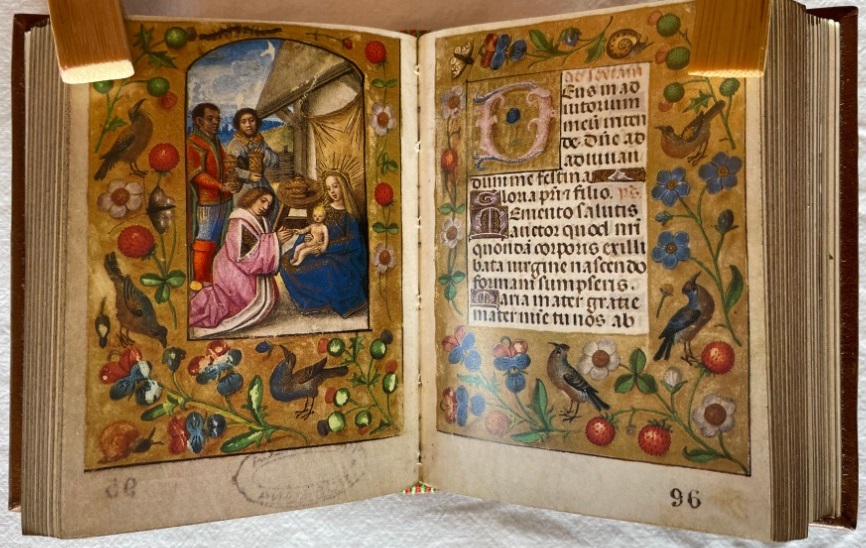 ad sextam
Deus in ad
iutorium
meū inten
de. Dn̄e ad
adiuuan
dum me festina
Gloria pr̄i ⁊ filio. ps
Memento salutis
auctor quod nr̄i
quondā corporis exilli
bata uirgine nascendo
formam sumpseris.
Maria mater gratie
mater mie tu nos ab
96